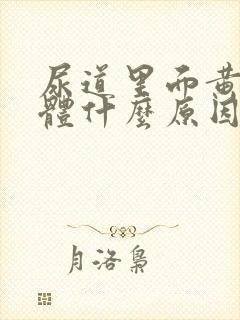 尿道里而黄
體什麼原因
月洛梟